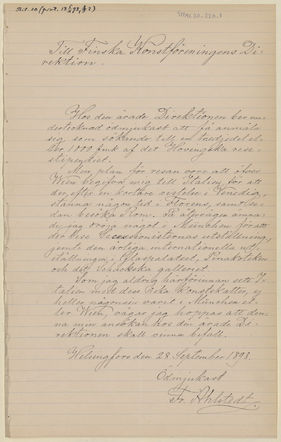 Till Finska Konstföreningens Di-
rektion.
Hos den ärade Direktionen ber un-
dertecknad ödmjukast att få anmäla
sig som sökande till en tredjedel
1000 fmk af det Hovingska rese-
stipendiet.
Min plan för resan vore att öfver
Wien begifva mig till Italien för att
der, efter en kortare vistelse i Venedig,
stanna någon tid i Florens, samt se-
dan besöka Rom. På återvägen
jag dröja något i München för att
der bese Secessionisternas utställning
jemte den årliga internationella ut-
ställningen i Glaspalatset, Pinakoteken
och det Schackska galleriet.
Som jag aldrig härförinnan sett I-
talien med dess rika konstskatter, ej
heller någonsin varit i München el-
ler Wien, vågar jag hoppas att den-
na min ansökan hos den ärade Di-
rektionen skall vinna bifall.
Helsingfors den 28 September 1893.
Ödmjukast
Fr. Ahlstedt.